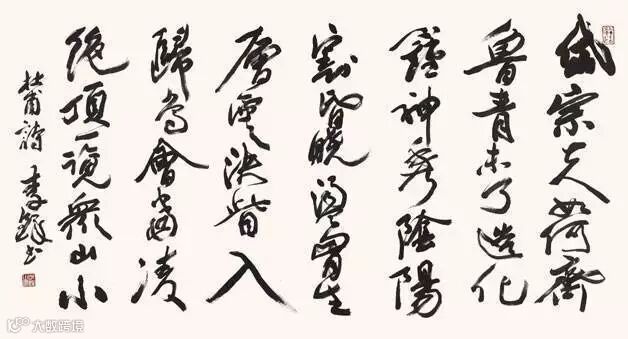 岱宗夫如何齊
魯青未了造化
鍾神秀陰陽
割昏曉盪胷生
層雲決眥入
歸鳥會當凌
絕頂一覽衆山小
杜甫詩 李鐸書
大数跨境